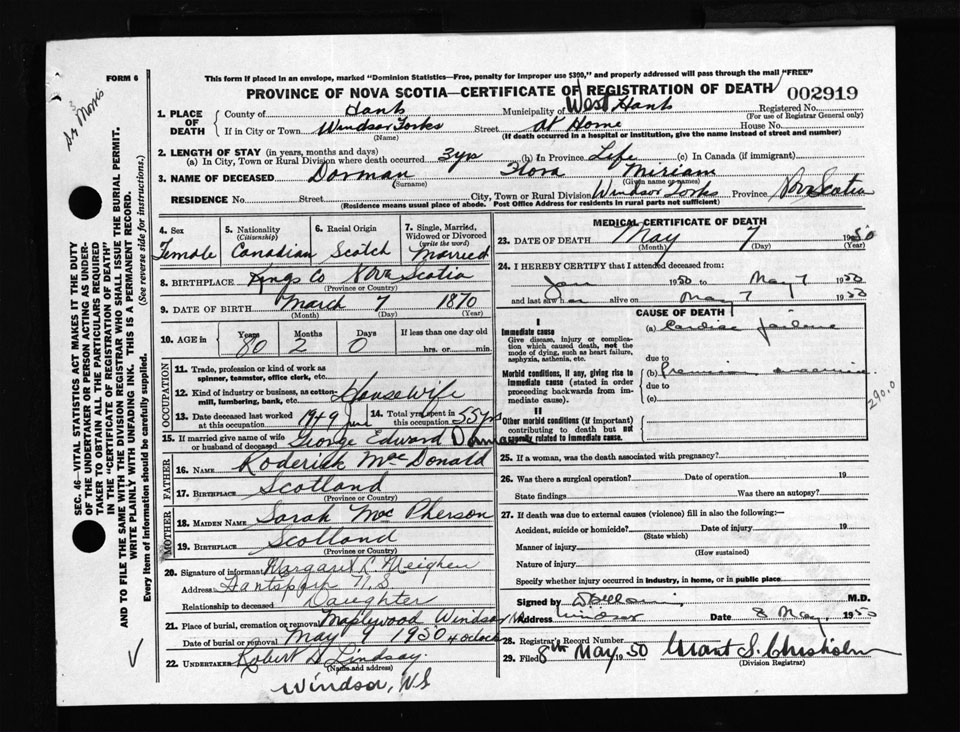 FORM 6
This form if placed in an envelope, marked "Dominion Statistics—Free, penalty for improper use $300," and properly addressed will pass through the mail "FREE"
PROVINCE OF NOVA SCOTIA—CERTIFICATE OF REGISTRATION OF DEATH
002919
1. PLACE OF DEATH
County of Hants Municipality of West Hants Registered No.
(For use of Registrar General only)
If in City or Town Windsor Forks Street At Home House No.
(Name) (If death occurred in a hospital or institution, give the name instead of street and number)
2. LENGTH OF STAY (in years, months and days)
(a) In City, Town or Rural Division where death occurred 3 yrs (b) In Province Life (c) In Canada (if immigrant)
3. NAME OF DECEASED Dorman Flora Miriam
(Surname) (Given name or names)
RESIDENCE No. Street City, Town or Rural Division Windsor Forks Province Nova Scotia
(Residence means usual place of abode. Post Office Address for residents in rural parts not sufficient)
4. Sex Female
5. Nationality (Citizenship) Canadian
6. Racial Origin Scotch
7. Single, Married, Widowed or Divorced (write the word) Married
8. BIRTHPLACE Kings Co Nova Scotia
(Province or Country)
9. DATE OF BIRTH March 7 1870
(Month) (Day) (Year)
10. AGE in Years 80 Months 2 Days 0 If less than one day old
hrs. or min.
OCCUPATION
11. Trade, profession or kind of work as spinner, teamster, office clerk, etc.
12. Kind of industry or business, as cotton-mill, lumbering, bank, etc. Housewife
13. Date deceased last worked at this occupation 1949 June
14. Total yrs. spent in this occupation 55 yrs
15. If married give name of wife or husband of deceased George Edward Dorman
FATHER
16. NAME Roderick MacDonald
17. BIRTHPLACE Scotland
(Province or Country)
MOTHER
18. MAIDEN NAME Sarah MacPherson
19. BIRTHPLACE Scotland
(Province or Country)
20. Signature of informant Margaret L. Meighen
Address Hantsport N.S.
Relationship to deceased Daughter
21. Place of burial, cremation or removal Maplewood Windsor
Date of burial or removal May 9 1950 4 oclock
22. UNDERTAKER Robert D Lindsay.
(Name and address)
Windsor, N.S
MEDICAL CERTIFICATE OF DEATH
23. DATE OF DEATH May 7 1950
(Month) (Day) (Year)
24. I HEREBY CERTIFY that I attended deceased from:
Jan 1950 to May 7 1950
and last saw her alive on May 7 1950
CAUSE OF DEATH
I
Immediate cause
Give disease, injury or complication which caused death, not the mode of dying, such as heart failure, asphyxia, asthenia, etc.
(a) Cardiac failure
due to
Morbid conditions, if any, giving rise to immediate cause (stated in order proceeding backwards from immediate cause).
(b) Pernicious anaemia
due to
(c)
290.0
II
Other morbid conditions (if important) contributing to death but not causally related to immediate cause.
25. If a woman, was the death associated with pregnancy?
26. Was there a surgical operation? Date of operation 19
State findings Was there an autopsy?
27. If death was due to external causes (violence) fill in also the following:—
Accident, suicide or homicide? Date of injury 19
(State which)
Manner of injury
(How sustained)
Nature of injury
Specify whether injury occurred in industry, in home, or in public place
Signed by M.D.
Address Windsor Date 8 May, 1950
28. Registrar's Record Number
29. Filed 8th May 1950 Grant S. Chisholm
(Division Registrar)
Dr Morris
SEC. 46—VITAL STATISTICS ACT MAKES IT THE DUTY
OF THE UNDERTAKER OR PERSON ACTING AS UNDERTAKER
TO OBTAIN ALL THE PARTICULARS REQUIRED
IN THE "CERTIFICATE OF REGISTRATION OF DEATH"
AND TO FILE THE SAME WITH THE DIVISION REGISTRAR WHO SHALL ISSUE THE BURIAL PERMIT.
WRITE PLAINLY WITH UNFADING INK. THIS IS A PERMANENT RECORD.
Every item of Information should be carefully supplied. (See reverse side for instructions.)